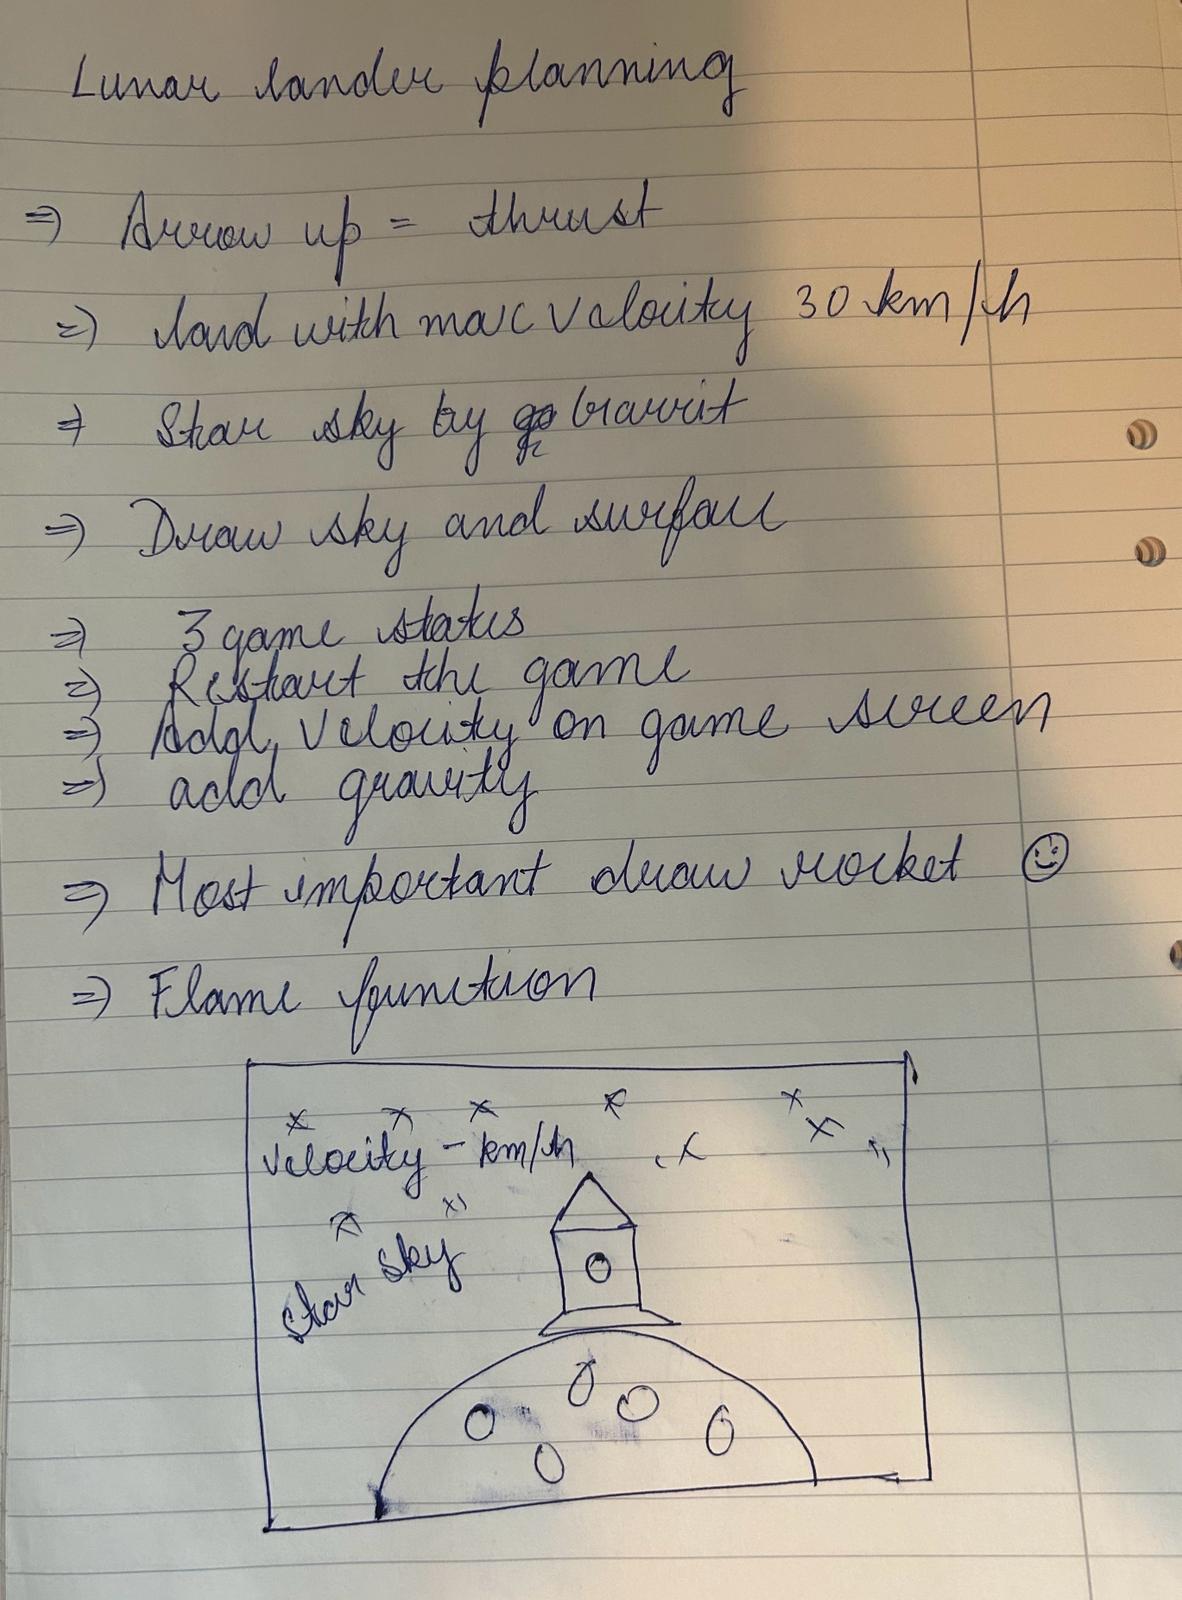 Lunar lander planning
⇒ Arrow up = thrust
⇒ land with max velocity 30 km/h
⇒ Star sky by Garrit
⇒ Draw sky and surface
⇒ 3 game states
⇒ Restart the game
⇒ Add velocity on game screen
⇒ add gravity
⇒ Most important draw rocket ☺
⇒ Flame function
Velocity - km/h
Star sky